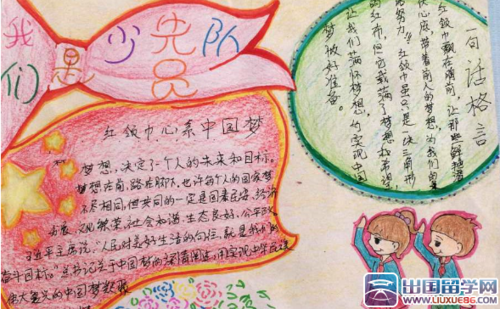 我们是少先队员
红领巾心系中国梦
梦想,决定了个人的未来和目标。
梦想在前,路在脚下,也许每个人的国家梦
不尽相同,但共同的一定是国泰民安,经济
发展,文化繁荣,社会和谐,生态良好,公平正义
习近平主席说:"人民对美好生活的向往,就是我们的
奋斗目标
伟大复兴的中国梦
一句话格言
红领巾飘在胸前,让那些鲜艳
心底,带着前人的梦想,为我们的
努力?红领巾虽只是一块三角形
的红布,但它载满了梦想和希望
让我们满怀梦想,为实现中国
梦做好准备。
出国留学网
www.liuxue86.com